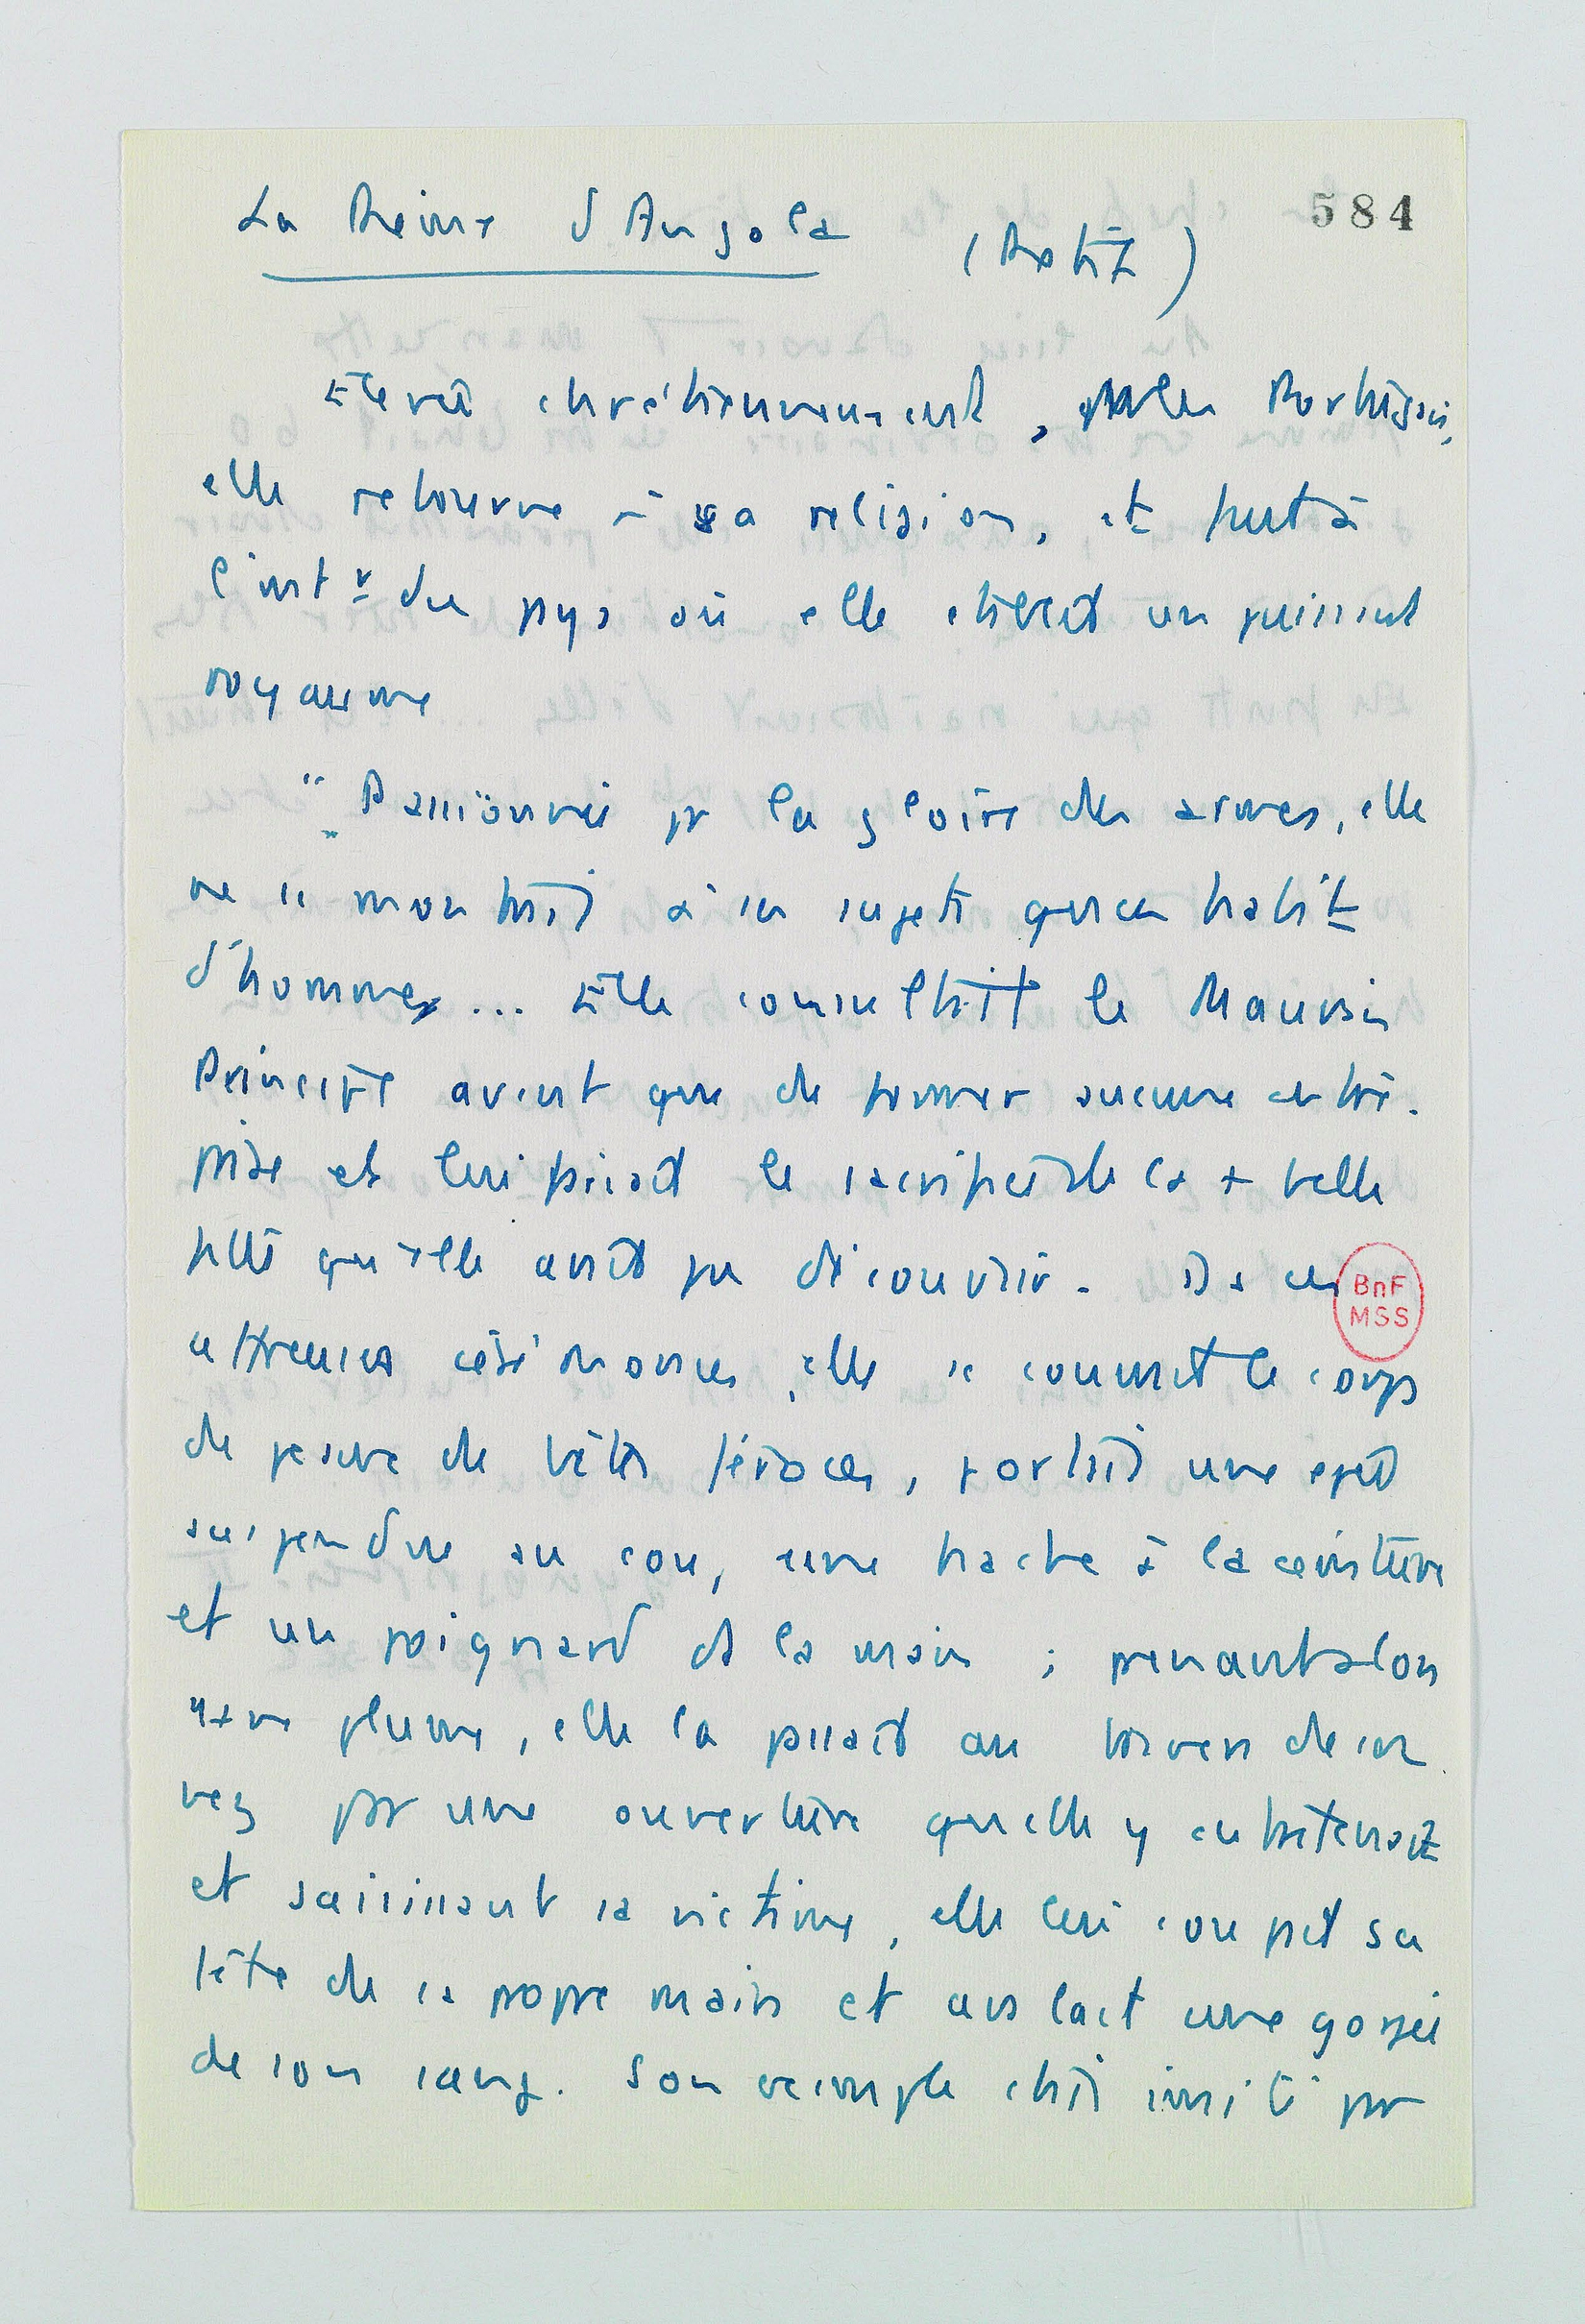 La Reine d'Angola
584
Elevée chrétiennement, les Portugais,
elle retourne à sa religion, et fuit à
l'int.r du pays où elle établit un puissant
royaume
" Passionnée pr la gloire des armes, elle
ne se montrait à ses sujets qu'en habit
d'hommes... Elle consultait le Mauvais
Principe avant que de former aucune entre-
prise et lui faisait le sacrifice de la + belle
fille qu'elle avait pu découvrir. Ds ces
affreuses cérémonies, elle se couvrait le corps
de peaux de bêtes féroces, portait une épée
suspendue au cou, une hache à la ceinture
et un poignard ds la main ; prenant alors
une plume, elle la passait au travers de son
nez par une ouverture qu'elle y entretenait
et saisissant sa victime, elle lui coupait sa
tête de sa propre main et avalait une gorgée
de son sang. Son exemple était imité par
BnF
MSS